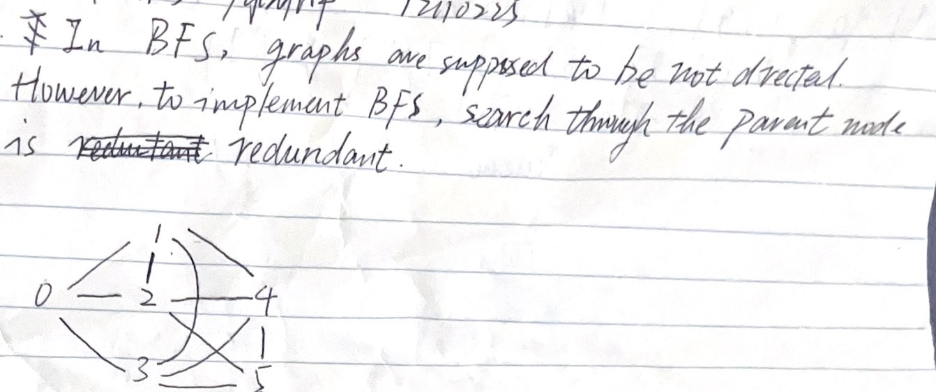 12110225
* In BFS, graphs are supposed to be not drected.
However, to implement BFS, search through the parent node
is redundant.
1
0 2 4
3 5